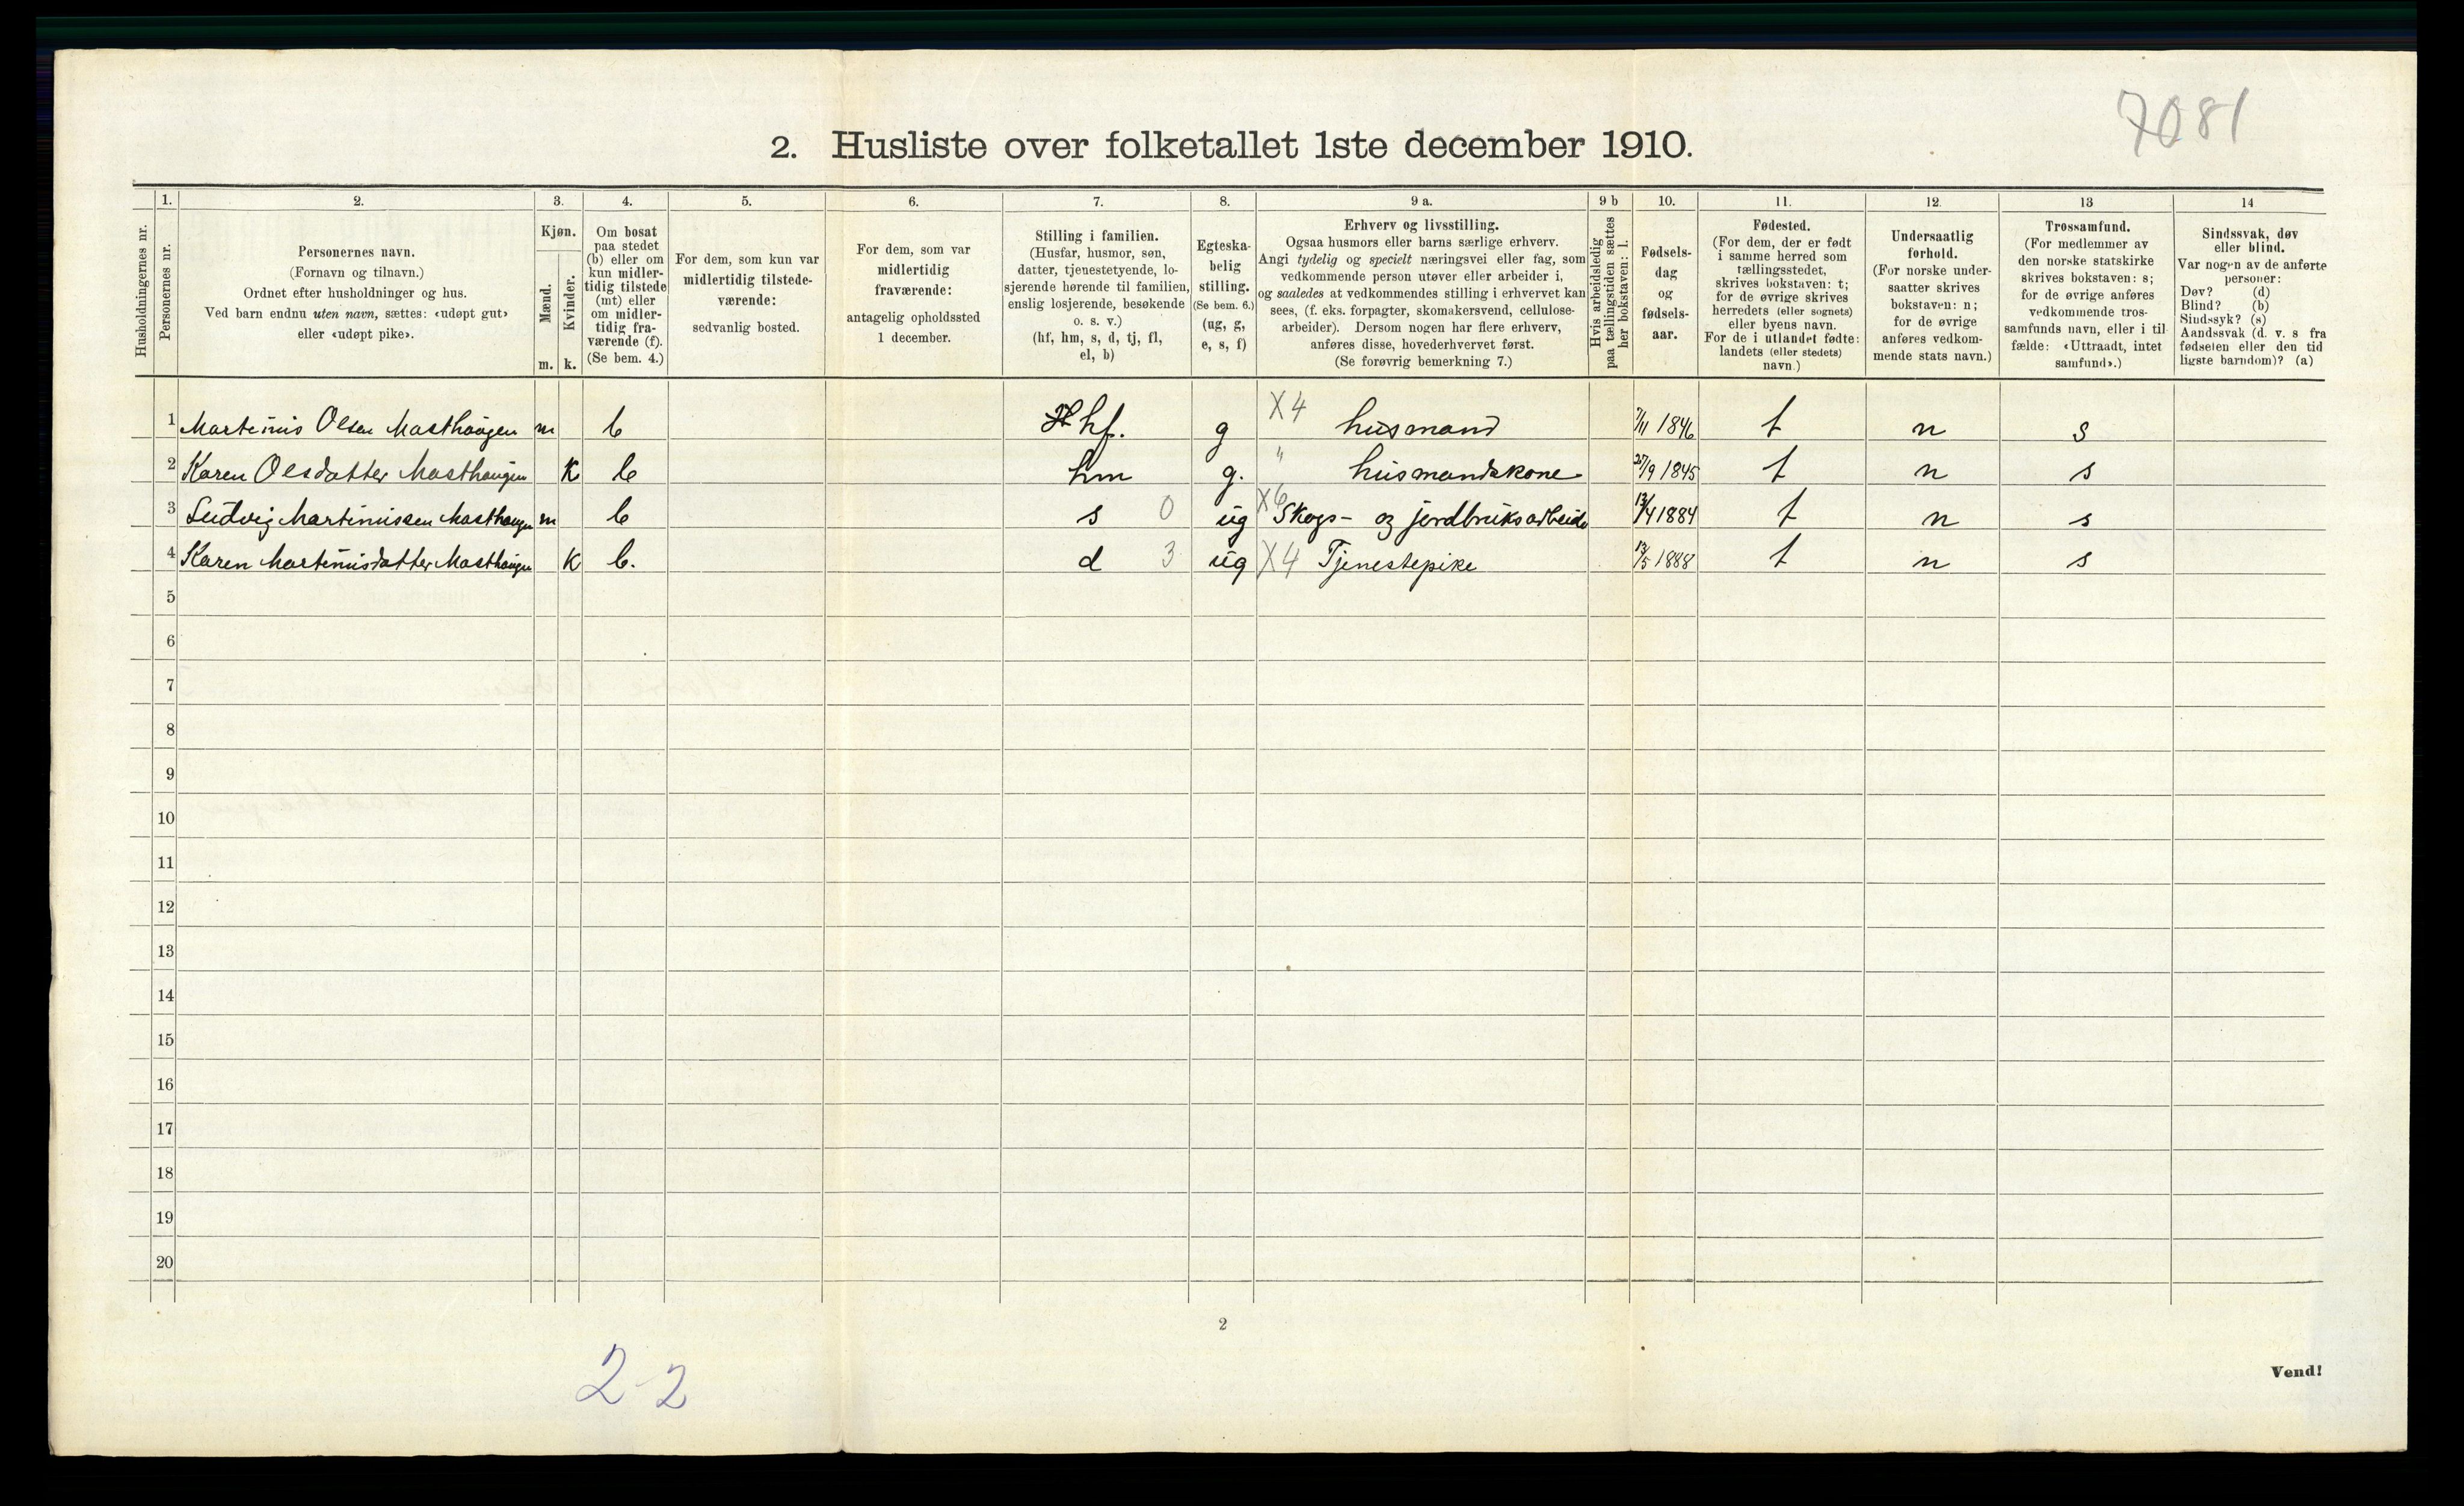 7081
2. Husliste over folketallet 1ste december 1910.
Husholdningernes nr.
1.
Personernes nr.
2.
Personernes navn.
(Fornavn og tilnavn.)
Ordnet efter husholdninger og hus.
Ved barn endnu uten navn, sættes: «udøpt gut»
eller «udøpt pike».
3.
Kjøn.
Mænd.
Kvinder.
m. k.
4.
Om bosat
paa stedet
(b) eller om
kun midler-
tidig tilstede
(mt) eller
om midler-
tidig fra-
værende (f).
(Se bem. 4.)
5.
For dem, som kun var
midlertidig tilstede-
værende:
sedvanlig bosted.
6.
For dem, som var
midlertidig
fraværende:
antagelig opholdssted
1 december.
7.
Stilling i familien.
(Husfar, husmor, søn,
datter, tjenestetyende, lo-
sjerende hørende til familien,
enslig losjerende, besøkende
o. s. v.)
(hf, hm, s, d, tj, fl,
el, b)
8.
Egteska-
belig
stilling.
(Se bem. 6.)
(ug, g,
e, s, f)
9 a.
Erhverv og livsstilling.
Ogsaa husmors eller barns særlige erhverv.
Angi tydelig og specielt næringsvei eller fag, som
vedkommende person utøver eller arbeider i,
og saaledes at vedkommendes stilling i erhvervet kan
sees, (f. eks. forpagter, skomakersvend, cellulose-
arbeider). Dersom nogen har flere erhverv,
anføres disse, hovederhvervet først.
(Se forøvrig bemerkning 7.)
9 b
Hvis arbeidsledig
paa tællingstiden sættes
her bokstaven: l.
10.
Fødsels-
dag
og
fødsels-
aar.
11.
Fødested.
(For dem, der er født
i samme herred som
tællingsstedet,
skrives bokstaven: t;
for de øvrige skrives
herredets (eller sognets)
eller byens navn.
For de i utlandet fødte:
landets (eller stedets)
navn.)
12.
Undersaatlig
forhold.
(For norske under-
saatter skrives
bokstaven: n;
for de øvrige
anføres vedkom-
mende stats navn.)
13
Trossamfund.
(For medlemmer av
den norske statskirke
skrives bokstaven: s;
for de øvrige anføres
vedkommende tros-
samfunds navn, eller i til-
fælde: «Uttraadt, intet
samfund».)
14
Sindssvak, døv
eller blind.
Var nogen av de anførte
personer:
Døv? (d)
Blind? (b)
Sindssyk? (s)
Aandssvak (d. v. s fra
fødselen eller den tid
ligste barndom)? (a)
1 Martinius Olsen Masthaugen m b hf. g X4 husmand 7/11 1846 t n s
2 Karen Olsdatter Masthaugen K b hm g. " husmandskone 27/9 1845 t n s
3 Ludvig Martinissen Masthaugen m b s 0 ug X6 Skogs- og jordbruksarbeider 13/4 1884 t n s
4 Karen Martinusdatter Masthaugen K b. d 3 ug X4 Tjenestepike 13/5 1888 t n s
5
6
7
8
9
10
11
12
13
14
15
16
17
18
19
20
2
2-2
Vend!